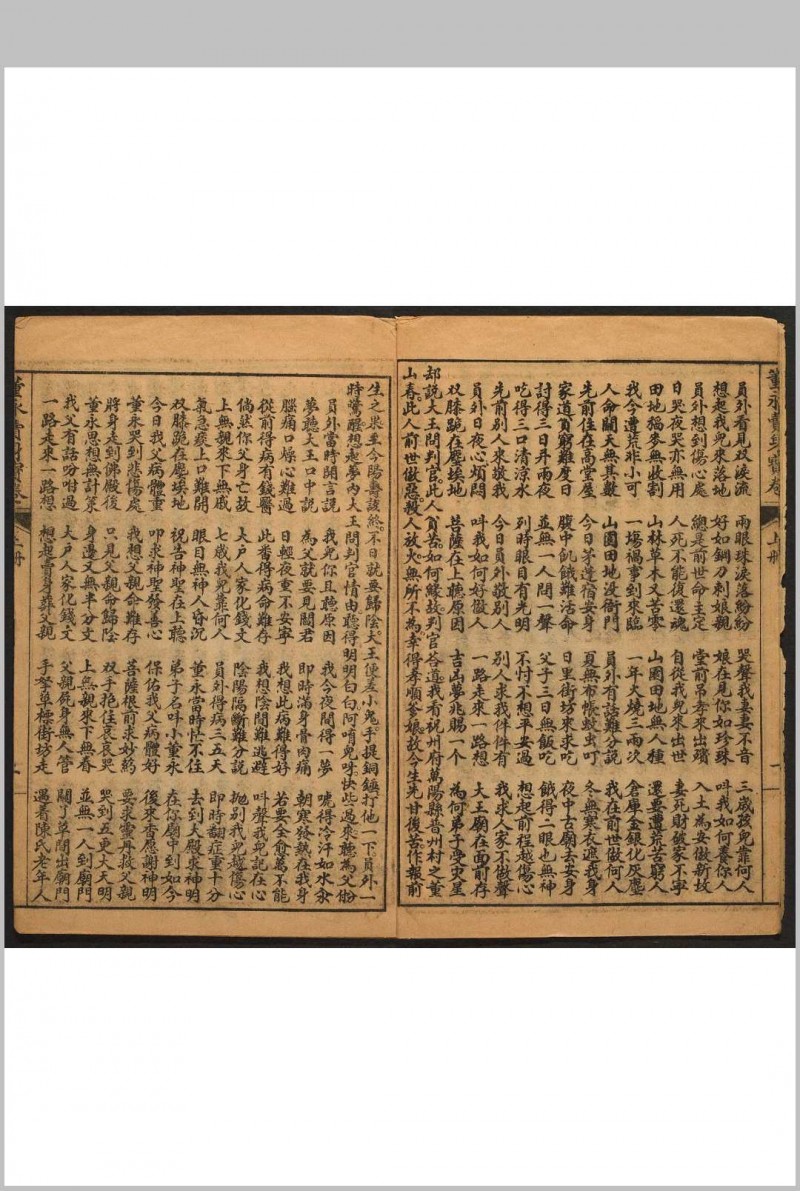 董永賣身寶卷 上冊
員外看見双淚流 兩眼珠淚落紛紛 哭聲我妻妻不音 三歲孩兒靠何人
想起我兒來落地 好如鋼刀刺娘親 娘在見你如珍珠 叫我如何養你人
員外想到傷心處 總是前世命主定 堂前吊孝來出殯 入土為安做新坟
日哭夜哭亦無用 人死不能復還魂 自從我兒來出世 妻死財破家不寧
田地稻麥無收割 山林草木又苦零 山園田地無人種 還要遭荒苦窮人
我今遭荒非小可 一塲禍事到來臨 一年火燒三兩次 倉庫金銀化灰塵
人命關天無其數 山園田地沒衙門 員外有話難分説 我在前世做何人
先前住在高堂屋 今日茅逢宿安身 夏無布帳蚊虫叮 冬無寒衣遮我身
家道貧窮難度日 腹中飢餓難活命 日里街坊來求吃 夜中古廟去安身
討得三日并兩夜 並無一人問一聲 父子三日無飯吃 餓得二眼也無神
吃得三口清涼水 列時眼目有光明 不忖不想平安過 想起前程越傷心
先前別人來敬我 今日員外敬別人 別人求我件件有 我求人家不做聲
員外日夜心煩悶 叫我如何好做人 一路走來一路想 大王廟在面前存
双膝跪在塵埃地 菩薩在上聽原因 吉凶夢兆賜一个 為何弟子受灾星
却説大王問判官。此人貧苦。如何緣故。判官答道。我看祝州府萬陽縣普州村之董
山春。此人前世做惡。殺人放火。無所不為。幸得孝順爹娘。故今生先甘後苦。作報前
生之果。至今陽壽該終。不日就要歸陰。大王便差小鬼。手提銅錘。打他一下。員外一
時驚醒。想起夢內大王問判官情由。聽得明明白白。阿唷。兒呀。快些過來。聽為父吩
員外當時開言説 我兒你且聽原因 我今夜間得一夢 唬得冷汗如水汆
夢聽大王口中説 為父就要見閻君 即時滿身骨肉痛 朝寒發熱在我身
腦痛口燥心難過 日輕夜重不安寧 我想此病難得好 若要全愈萬不能
從前得病有錢醫 此番得病命難存 我想陰間難逃避 叫聲我兒記在心
倘然你父身亡故 大戶人家化錢文 陰陽隔斷難分説 拋別我兒越傷心
上無親來下無戚 七歲我兒靠何人 員外得病三五天 即時翻症重十分
氣急痰上口難開 眼目無神人昏沉 董永當時忙不住 去到大殿求神明
双膝跪在塵埃地 祝告神聖在上聽 弟子名叫小董永 在你廟中到如今
今日我父病體重 叩求神聖發善心 保佑我父病體好 後來香應謝神明
董永哭到悲傷處 我想父親命難存 菩薩根前求妙药 要求靈丹救父親
將身走到佛殿後 只見父親命歸陰 双手拖住哀哀哭 哭到五更大天明
董永思想無計策 身邊又無半分文 上無親來下無眷 並無一人到廟門
我父有話吩咐過 大戶人家化錢文 父親死身無人管 關了草門出廟門
一路走來一路想 想起賣身葬父親 手拏草標街坊走 遇着陳氏老年人